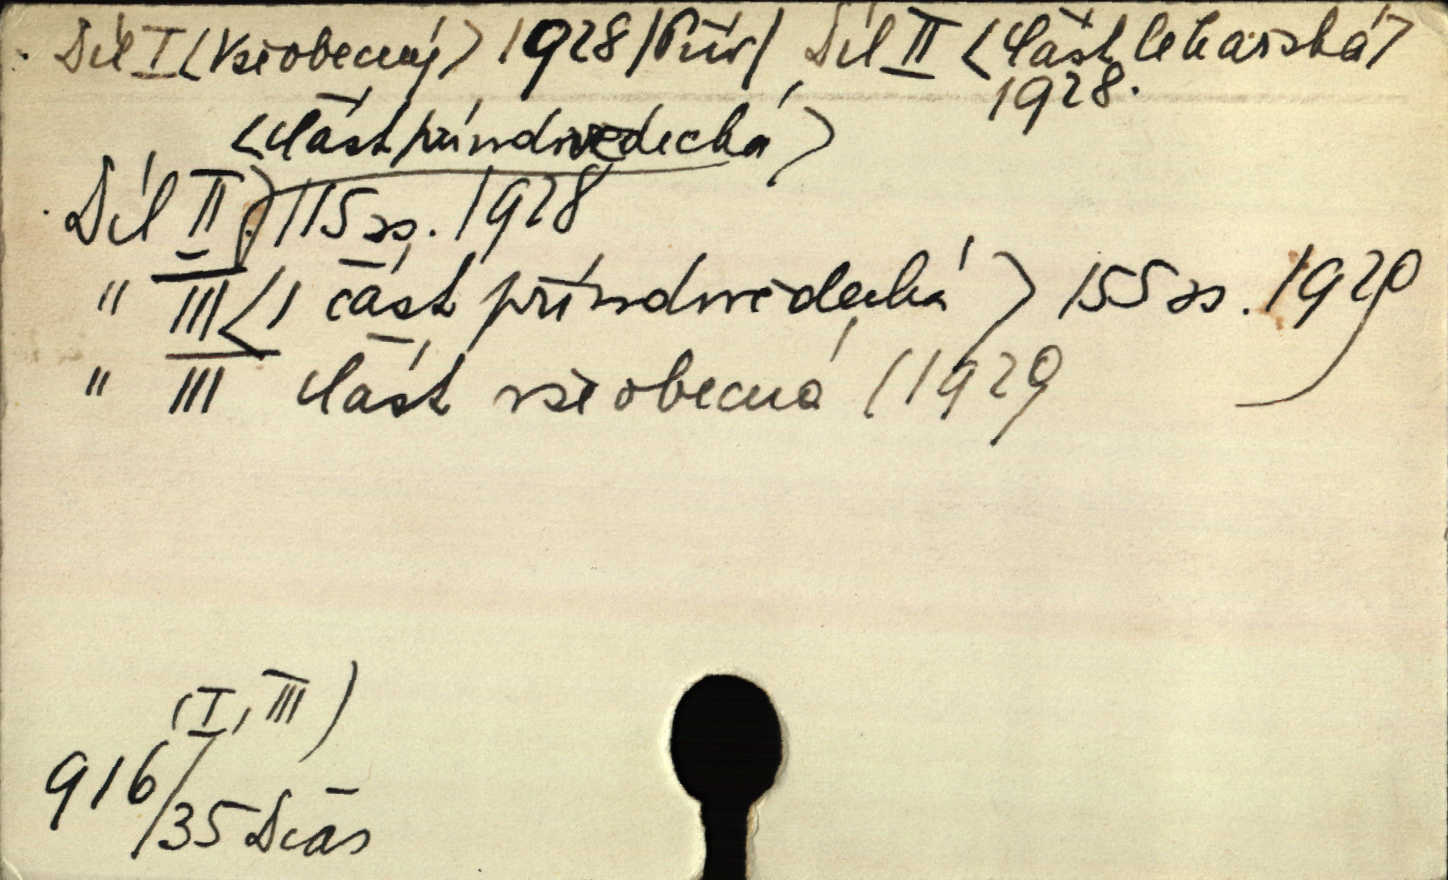 Díl I <Všeobecný> 1928 Díl II <Část lékařská>
1928.
<Část přírodovědecká>
Díl II) 115 ss. 1928
" III <1 část přírodovědecká> 155 ss. 1929
" III Část všeobecná (1929
(I, III)
916/35 Dias